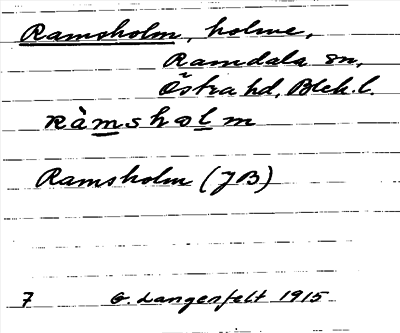 Ramsholm, holme,
Ramdala sn,
Östra hd, Blek. l.
ràmshalm
Ramsholm (JB)
7 G. Langenfelt 1915